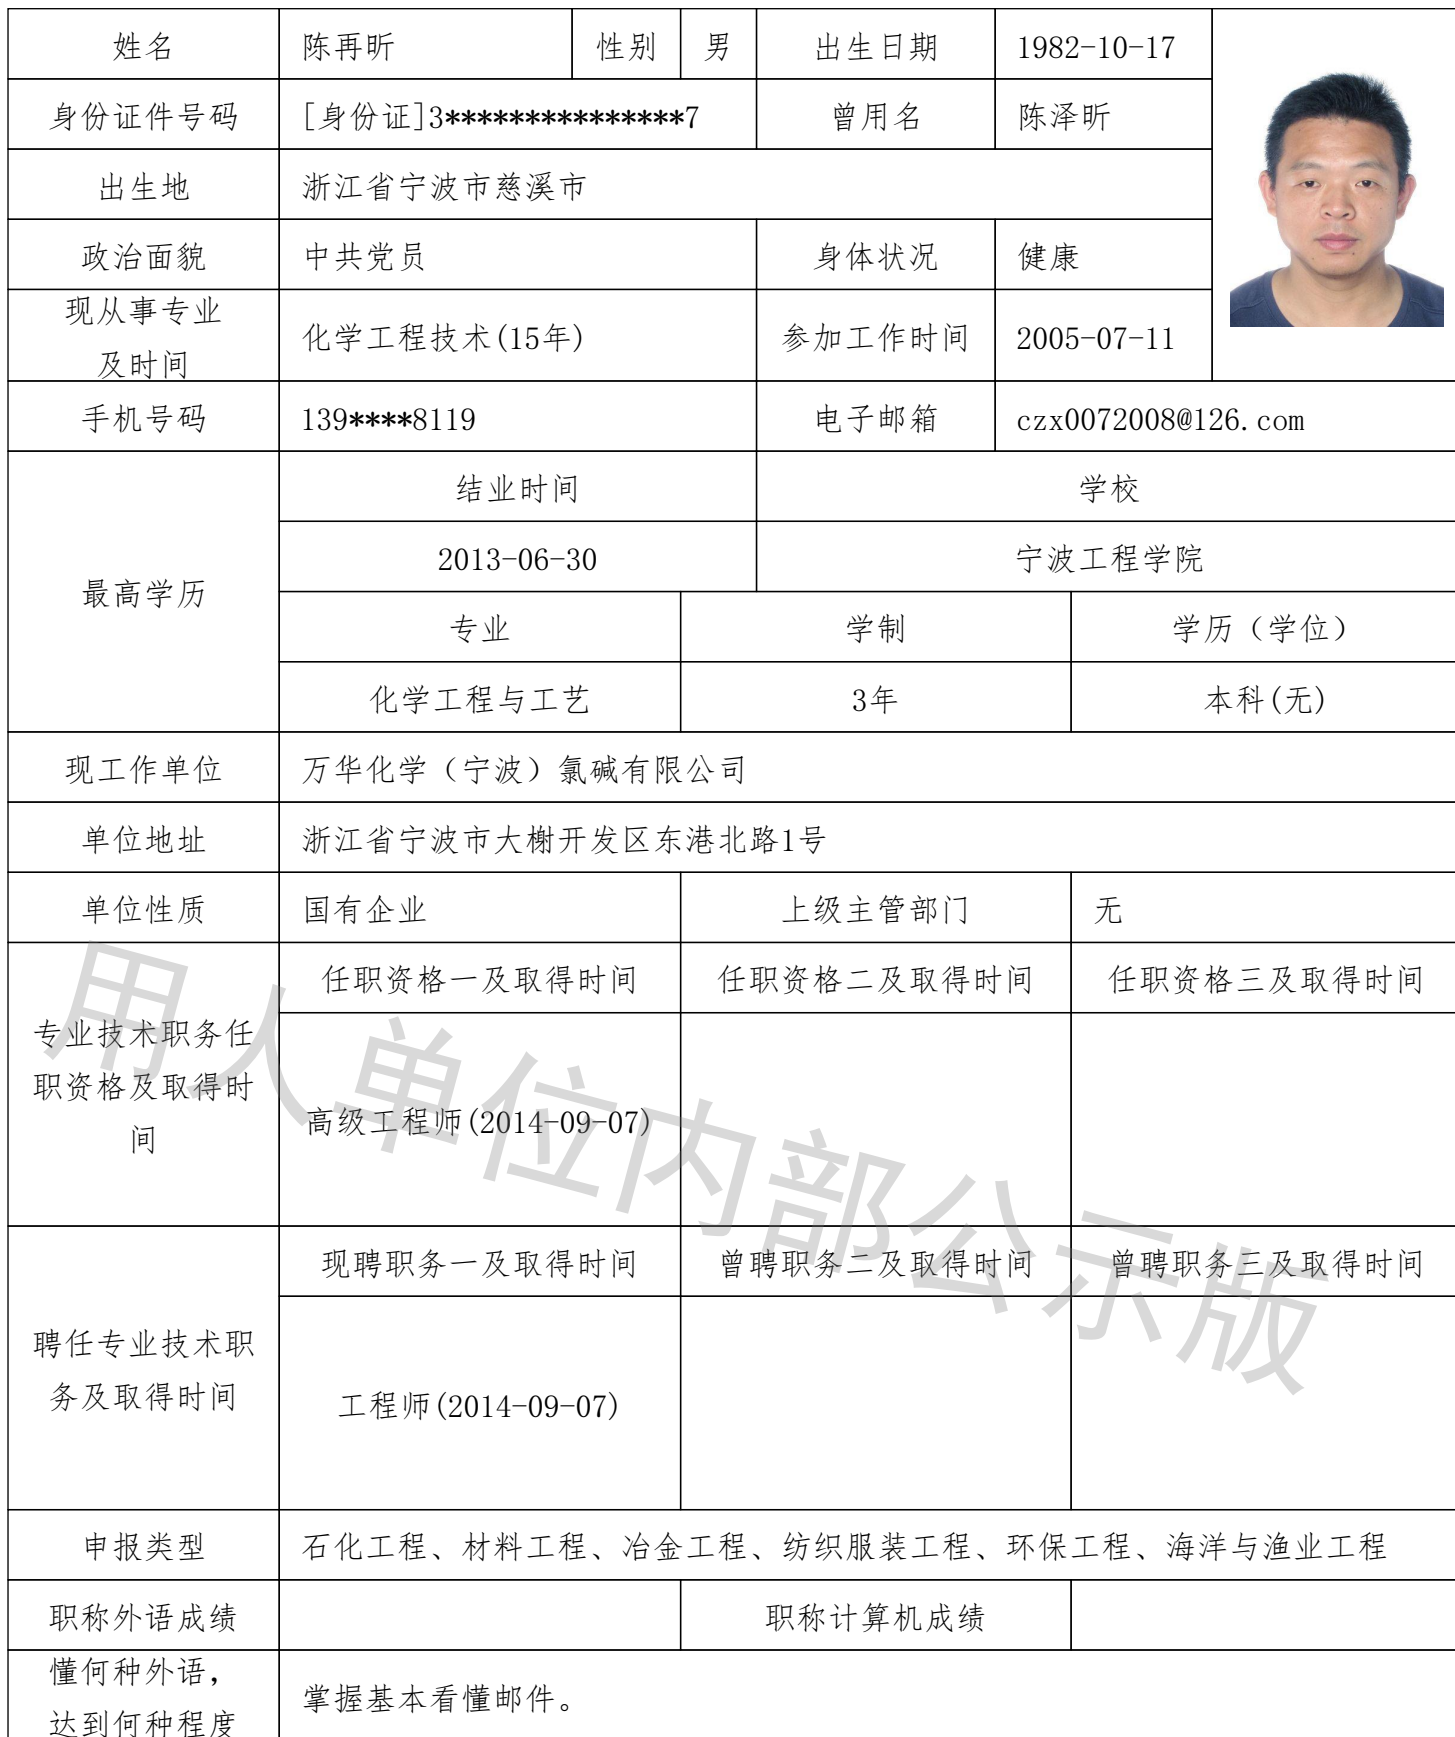 姓名 陈再昕 性别 男 出生日期 1982-10-17
身份证件号码 [身份证]3***************7 曾用名 陈泽昕
出生地 浙江省宁波市慈溪市
政治面貌 中共党员 身体状况 健康
现从事专业
及时间
化学工程技术(15年) 参加工作时间 2005-07-11
手机号码 139****8119 电子邮箱 czx0072008@126.com
最高学历
结业时间 学校
2013-06-30 宁波工程学院
专业 学制 学历（学位）
化学工程与工艺 3年 本科(无)
现工作单位 万华化学（宁波）氯碱有限公司
单位地址 浙江省宁波市大榭开发区东港北路1号
单位性质 国有企业 上级主管部门 无
专业技术职务任
职资格及取得时
间
任职资格一及取得时间 任职资格二及取得时间 任职资格三及取得时间
高级工程师(2014-09-07)
聘任专业技术职
务及取得时间
现聘职务一及取得时间 曾聘职务二及取得时间 曾聘职务三及取得时间
工程师(2014-09-07)
申报类型 石化工程、材料工程、冶金工程、纺织服装工程、环保工程、海洋与渔业工程
职称外语成绩 职称计算机成绩
懂何种外语，
达到何种程度
掌握基本看懂邮件。
用人单位内部公示版